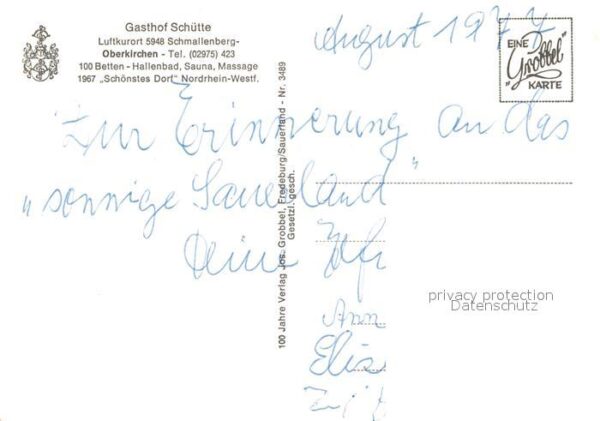 Gasthof Schütte
Luftkurort 5948 Schmallenberg-
Oberkirchen - Tel. (02975) 423
100 Betten - Hallenbad, Sauna, Massage
1967 „Schönstes Dorf" Nordrhein-Westf.
August 1977
EINE
„Grobbel"
KARTE
Zur Erinnerung an das
„sonnige Sauerland"
Deine
Ann
Elis
100 Jahre Verlag Jos. Grobbel, Fredeburg/Sauerland - Nr. 3489
Gesetzl. gesch.
privacy protection
Datenschutz